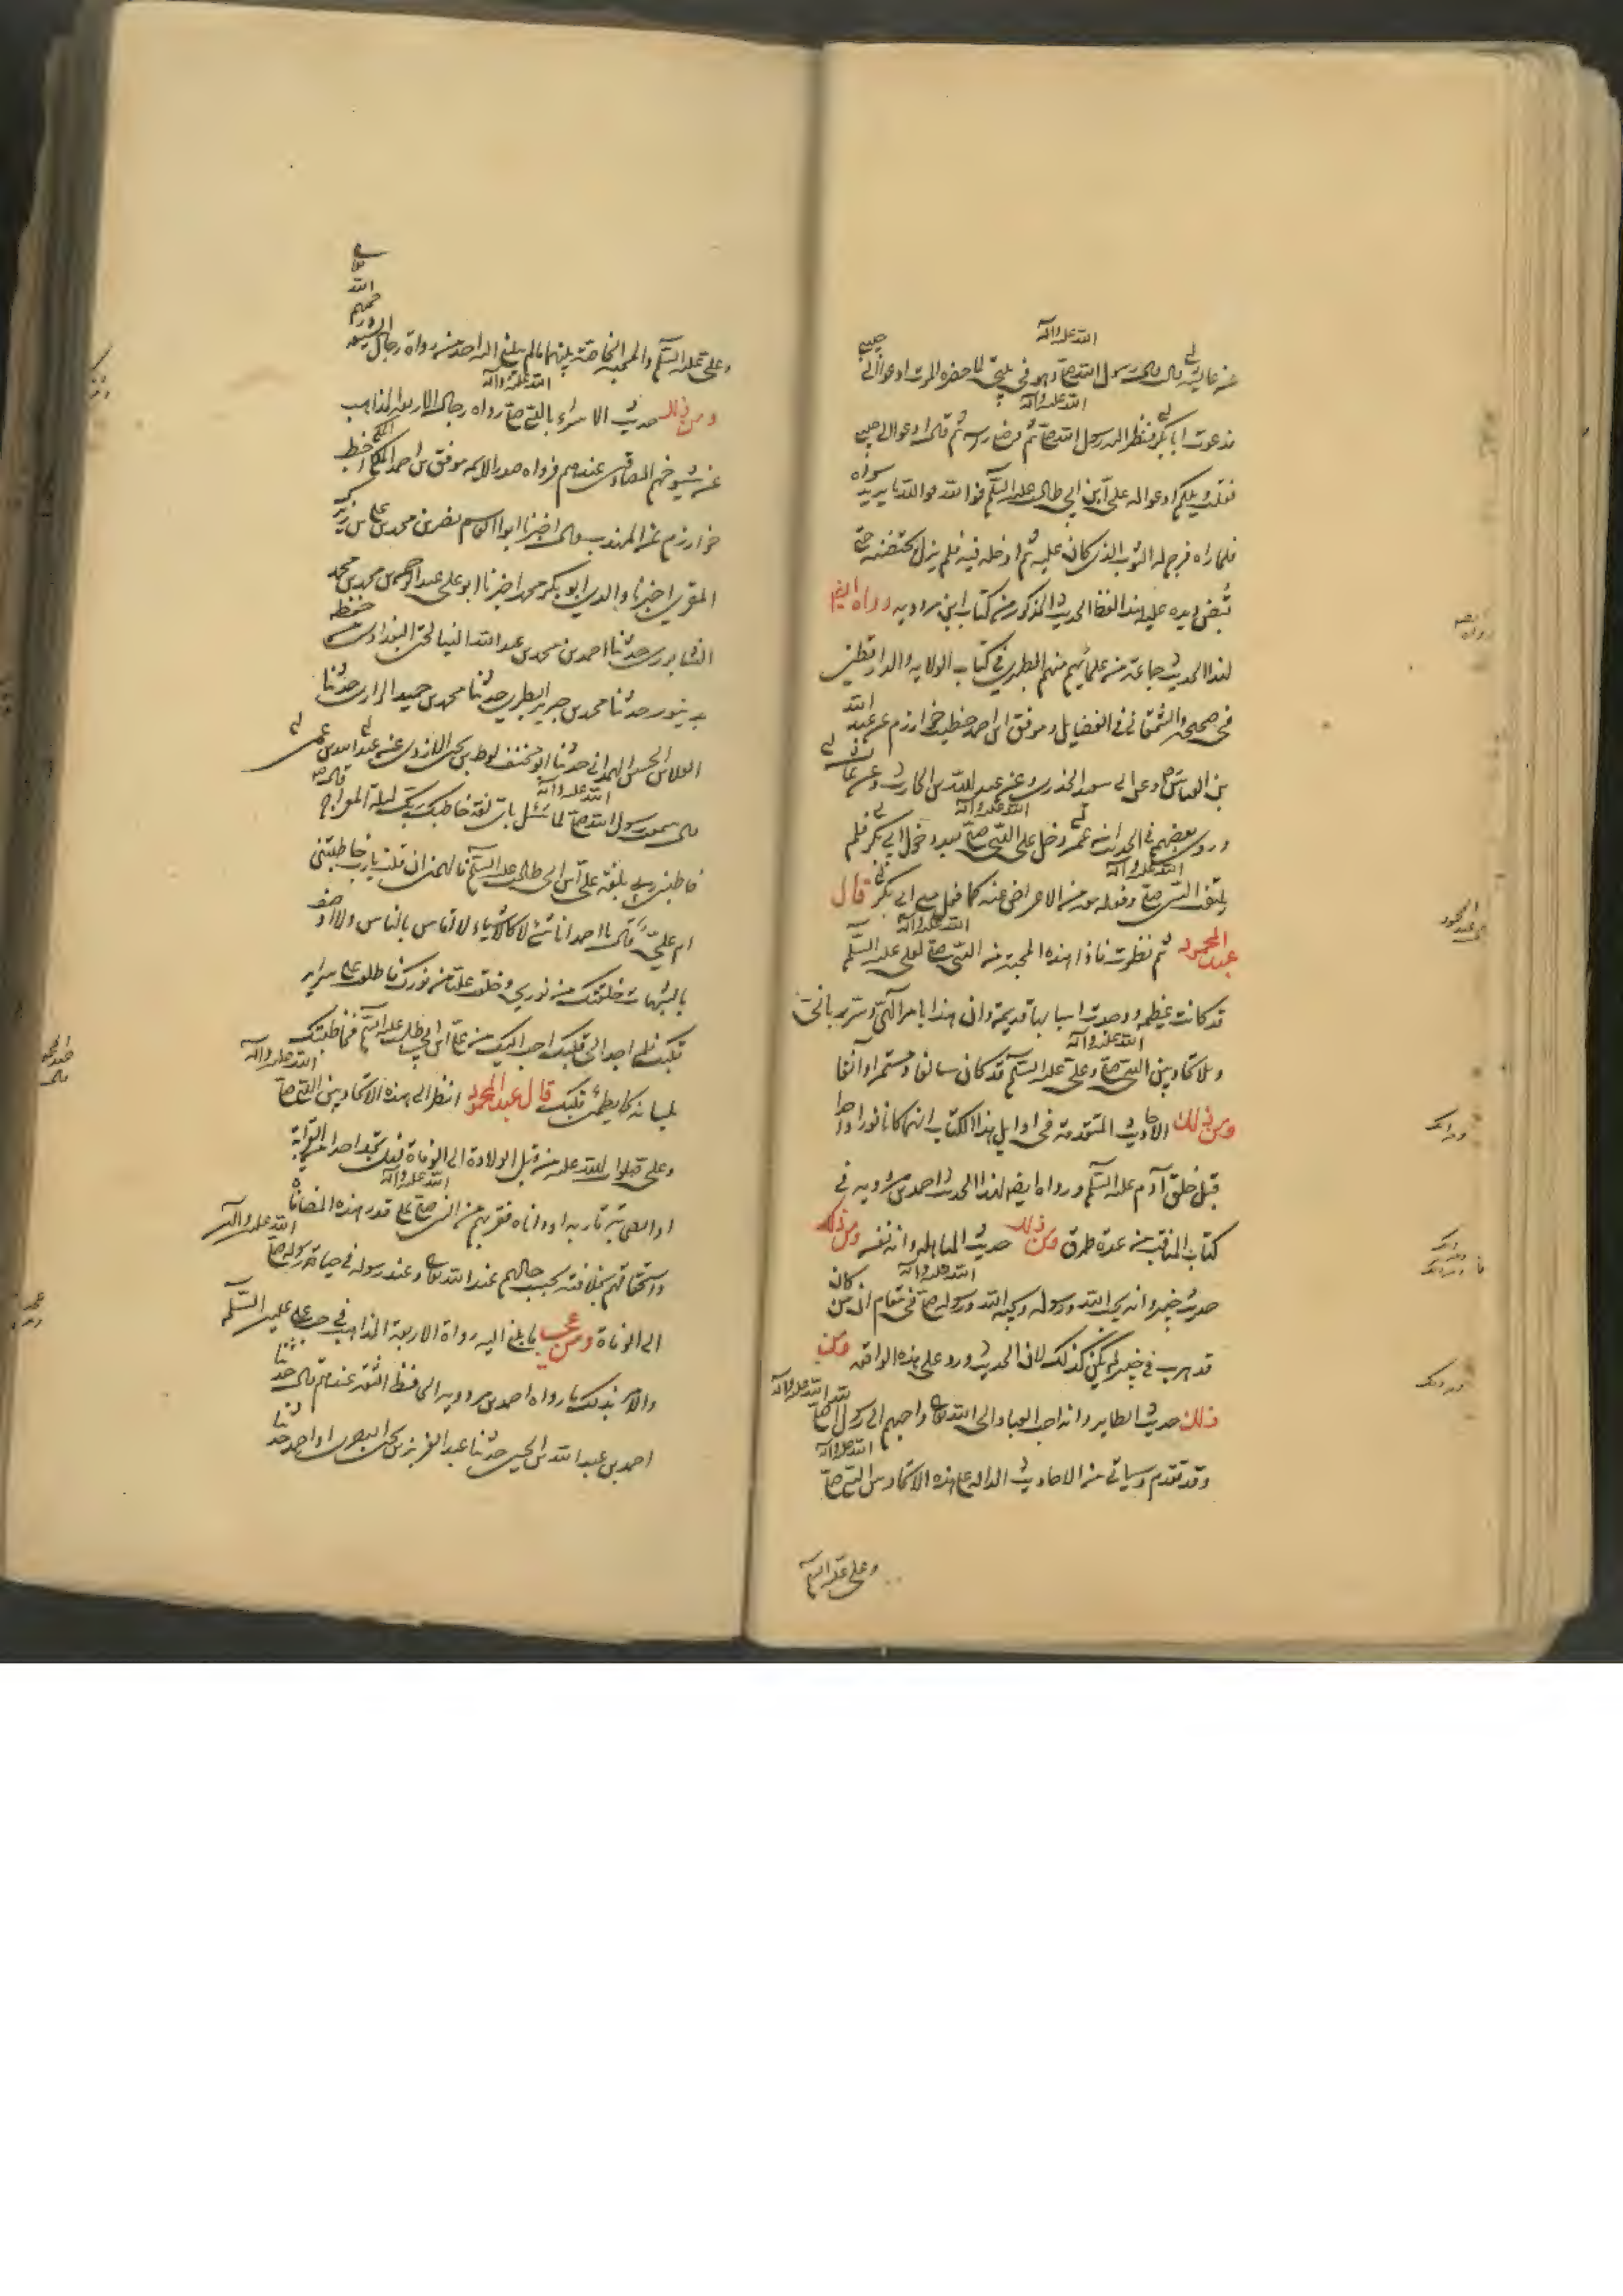 عن عايشة قالت قال رسول الله صلى الله عليه وآله وهو في بيتي لما حضره الموت ادعوا لي حبيبي
فدعوت ابا بكر فنظر اليه رسول الله صلى الله عليه وآله ثم وضع راسه ثم قال ادعوا لي حبيبي
فقلت ويلكم ادعوا له علي بن ابي طالب عليه السلم فوالله ما يريد سواه
فلما راه فرج له الثوب الذي كان عليه ثم ادخله فيه فلم يزل يحتضنه حتى
قبض ويده عليه هذا لفظ الحديث المذكور من كتاب ابن مردويه ورواه ايضا
لهذا الحديث جماعة من علمائهم منهم الطبري في كتاب الولاية والدارقطني
في صحيحه والسمعاني في الفضايل وموفق بن احمد خطيب خوارزم عن عبد الله
بن العباس وعن ابي سعيد الخدري وعن عبد الله بن الحارث وعن عائشة
وروى بعضهم في الحديث ان عمر دخل على النبي صلى الله عليه وآله بعد دخول ابي بكر فلم
يلتفت النبي صلى الله عليه وآله وفعل معه من الاعراض عنه كما فعل مع ابي بكر قال
عبد المحمود ثم نظرت فاذا هذه المحبة من النبي صلى الله عليه وآله لعلي عليه السلم
قد كانت عظيمة ووجدت اسبابها قديمة وان هذا بامر الهي وسر رباني
ولاتحاد بين النبي صلى الله عليه وآله وعلي عليه السلم قد كان سالفا ومستمرا وآنفا
ومن ذلك الاحاديث المتقدمة في اوايل هذا الكتاب انهما كانا نورا واحدا
قبل خلق آدم عليه السلم ورواه ايضا لهذا الحديث احمد بن مردويه في
كتاب المناقب من عدة طرق ومن ذلك حديث المباهلة وانه نفسه ومن ذلك
حديث خيبر وانه يحب الله ورسوله ويحبه الله ورسوله صلى الله عليه وآله في مقام ان من كان
قد هرب في خيبر لم يكن كذلك لان الحديث ورد على هذه الواقعة ومن
ذلك حديث الطاير وانه احب العباد الى الله تعالى واحبهم الى رسول الله صلى الله عليه وآله
وقد تقدم وسياتي من الاحاديث الدالة على هذه الاتحاد بين النبي صلى الله عليه وآله
وعلي عليه السلم
وعلي عليه السلم والمحبة الخاصة بينهما ما لم يبلغ اليه احد من رواة رجال
ومن ذلك حديث الاسراء بالنبي صلى الله عليه وآله رواه رجال الاربعة المذاهب
عن شيوخهم الصادقين عندهم فرواه صدر الايمه موفق بن احمد المكي اخطب
خوارزم عن المهذب قال اخبرنا ابو القاسم نصر بن محمد بن علي بن زيرك
المقري اخبرنا والدي ابو بكر محمد اخبرنا ابو علي عبد الرحمن بن محمد بن محمد
النيسابوري حدثنا احمد بن محمد بن عبد الله النبالحي البغدادي من حفظه
بدينور حدثنا محمد بن جرير الطبري حدثنا محمد بن حميد الرازي حدثنا
العلا بن الحسين الهمداني حدثنا ابو مخنف لوط بن يحيى الازدي عن عبد الله بن عمر
قال سمعت رسول الله صلى الله عليه وآله لما سئل باي لغة خاطبك ربك ليلة المعراج قال
خاطبني ربي بلغة علي بن ابي طالب عليه السلم فالهمني ان قلت يا رب خاطبتني
ام علي قال يا احمد انا شئ لا كالاشياء لا اقاس بالناس ولا اوصف
بالشبهات خلقتك من نوري وخلقت عليا من نورك فاطلعت على سراير
قلبك فلم اجد الى قلبك احب اليك من علي بن ابي طالب عليه السلم فخاطبتك
بلسانه كما يطمئن قلبك قال عبد المحمود انظر الى هذه الاتحاد بين النبي صلى الله عليه وآله
وعلي من قبل الولادة الى الوفاة فهل تجد احدا من القرابة
او الصحابة قاربه او داناه فقربهم من النبي صلى الله عليه وآله على قدر هذه المصافاة
واستحقاقهم لخلافته بحسب حالهم عند الله تعالى وعند رسوله في حياة رسوله صلى الله عليه وآله
الى الوفاة ومن عجب ما بلغ اليه رواة الاربعة المذاهب في حب علي عليه السلم
والامر بذلك ما رواه احمد بن مردويه الحافظ الثقة عندهم قال حدثنا
احمد بن عبد الله بن الحسين حدثنا عبد العزيز بن يحيى البصري ابو احمد حدثنا